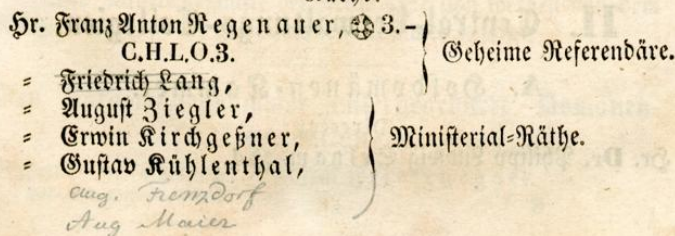 Hr. Franz Anton Regenauer, 3.-
C.H.L.O3.
Geheime Referendäre.
= Friedrich Lang,
= August Ziegler,
= Erwin Kirchgeßner,
Ministerial=Räthe.
= Gustav Kühlenthal,
Aug. Frenzdorf
Aug Maier